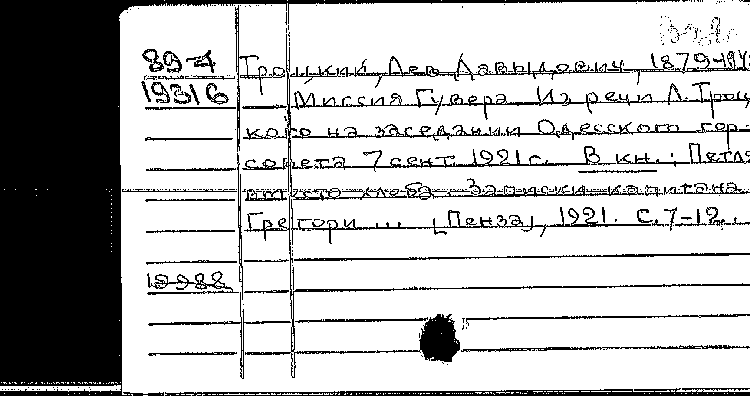 89-4 Троцкий, Лев Давыдович, 1879-194
19316 Миссия Гувера. Из речи Л. Троц
кого на заседании Одесского гор-
совета 7 сент. 1921 г. В кн.: Петля
вместо хлеба. Записки капитана
Грегори ... [Пенза], 1921. С. 7-12.
19988